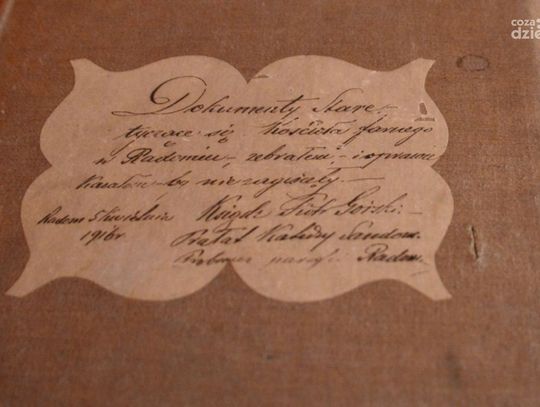 coza
dzie
Dokumenty Stare
tyczące się Kościoła farnego
w Radomiu, zebrałem, i oprawić
kazałem by nie zaginęły.
Radom 5 Kwietnia Ksiądz Piotr Górski
1916 r Prałat Katedry Sandom.
Proboszcz parafii Radom.